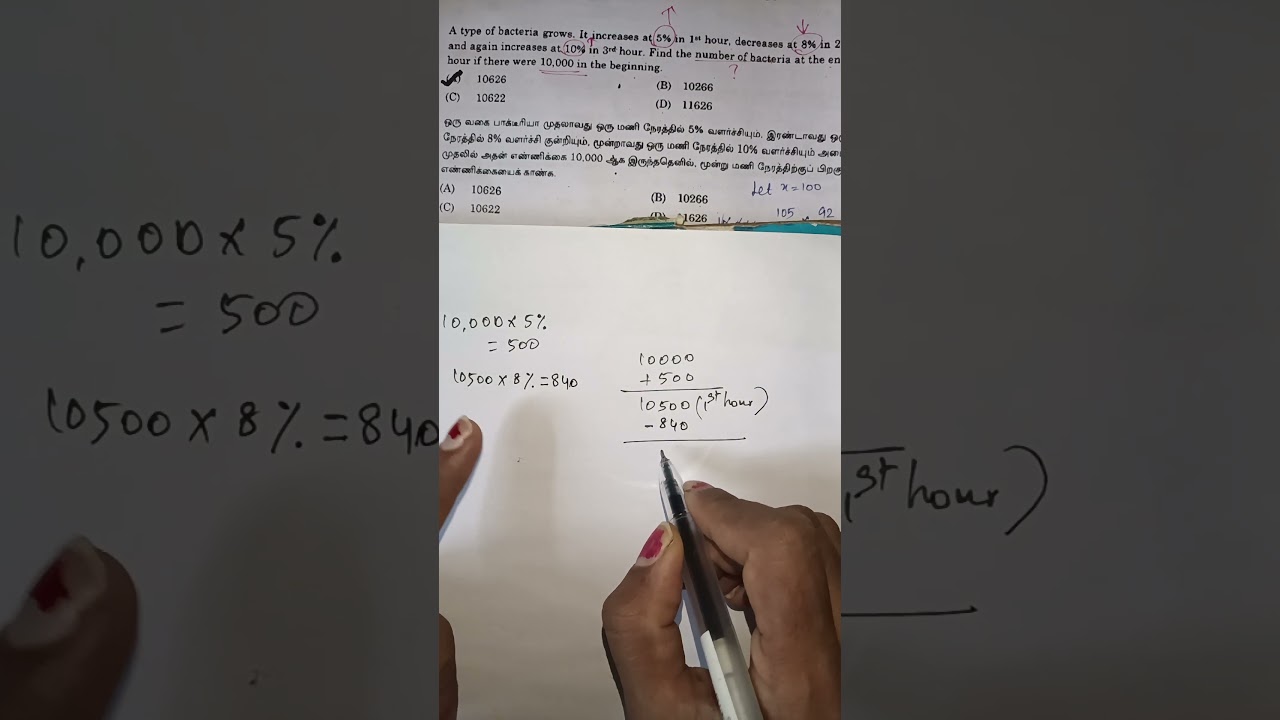 A type of bacteria grows. It increases at 5% in 1st hour, decreases at 8% in 2
and again increases at 10% in 3rd hour. Find the number of bacteria at the en
hour if there were 10,000 in the beginning.
?
10626
(B) 10266
(C) 10622
(D) 11626
ஒரு வகை பாக்டீரியா முதலாவது ஒரு மணி நேரத்தில் 5% வளர்ச்சியும், இரண்டாவது ஒரு
நேரத்தில் 8% வளர்ச்சி குன்றியும், மூன்றாவது ஒரு மணி நேரத்தில் 10% வளர்ச்சியும் அடை
முதலில் அதன் எண்ணிக்கை 10,000 ஆக இருந்ததெனில், மூன்று மணி நேரத்திற்குப் பிறகு
எண்ணிக்கையைக் காண்க.
Let x = 100
(A) 10626
(B) 10266
105 92
(C) 10622
(D) 1626
10,000 x 5%
= 500
10500 x 8% = 840
10000
+ 500
10500 (1st hour)
- 840
10,000 x 5%
= 500
10500 x 8% = 840
st hour)